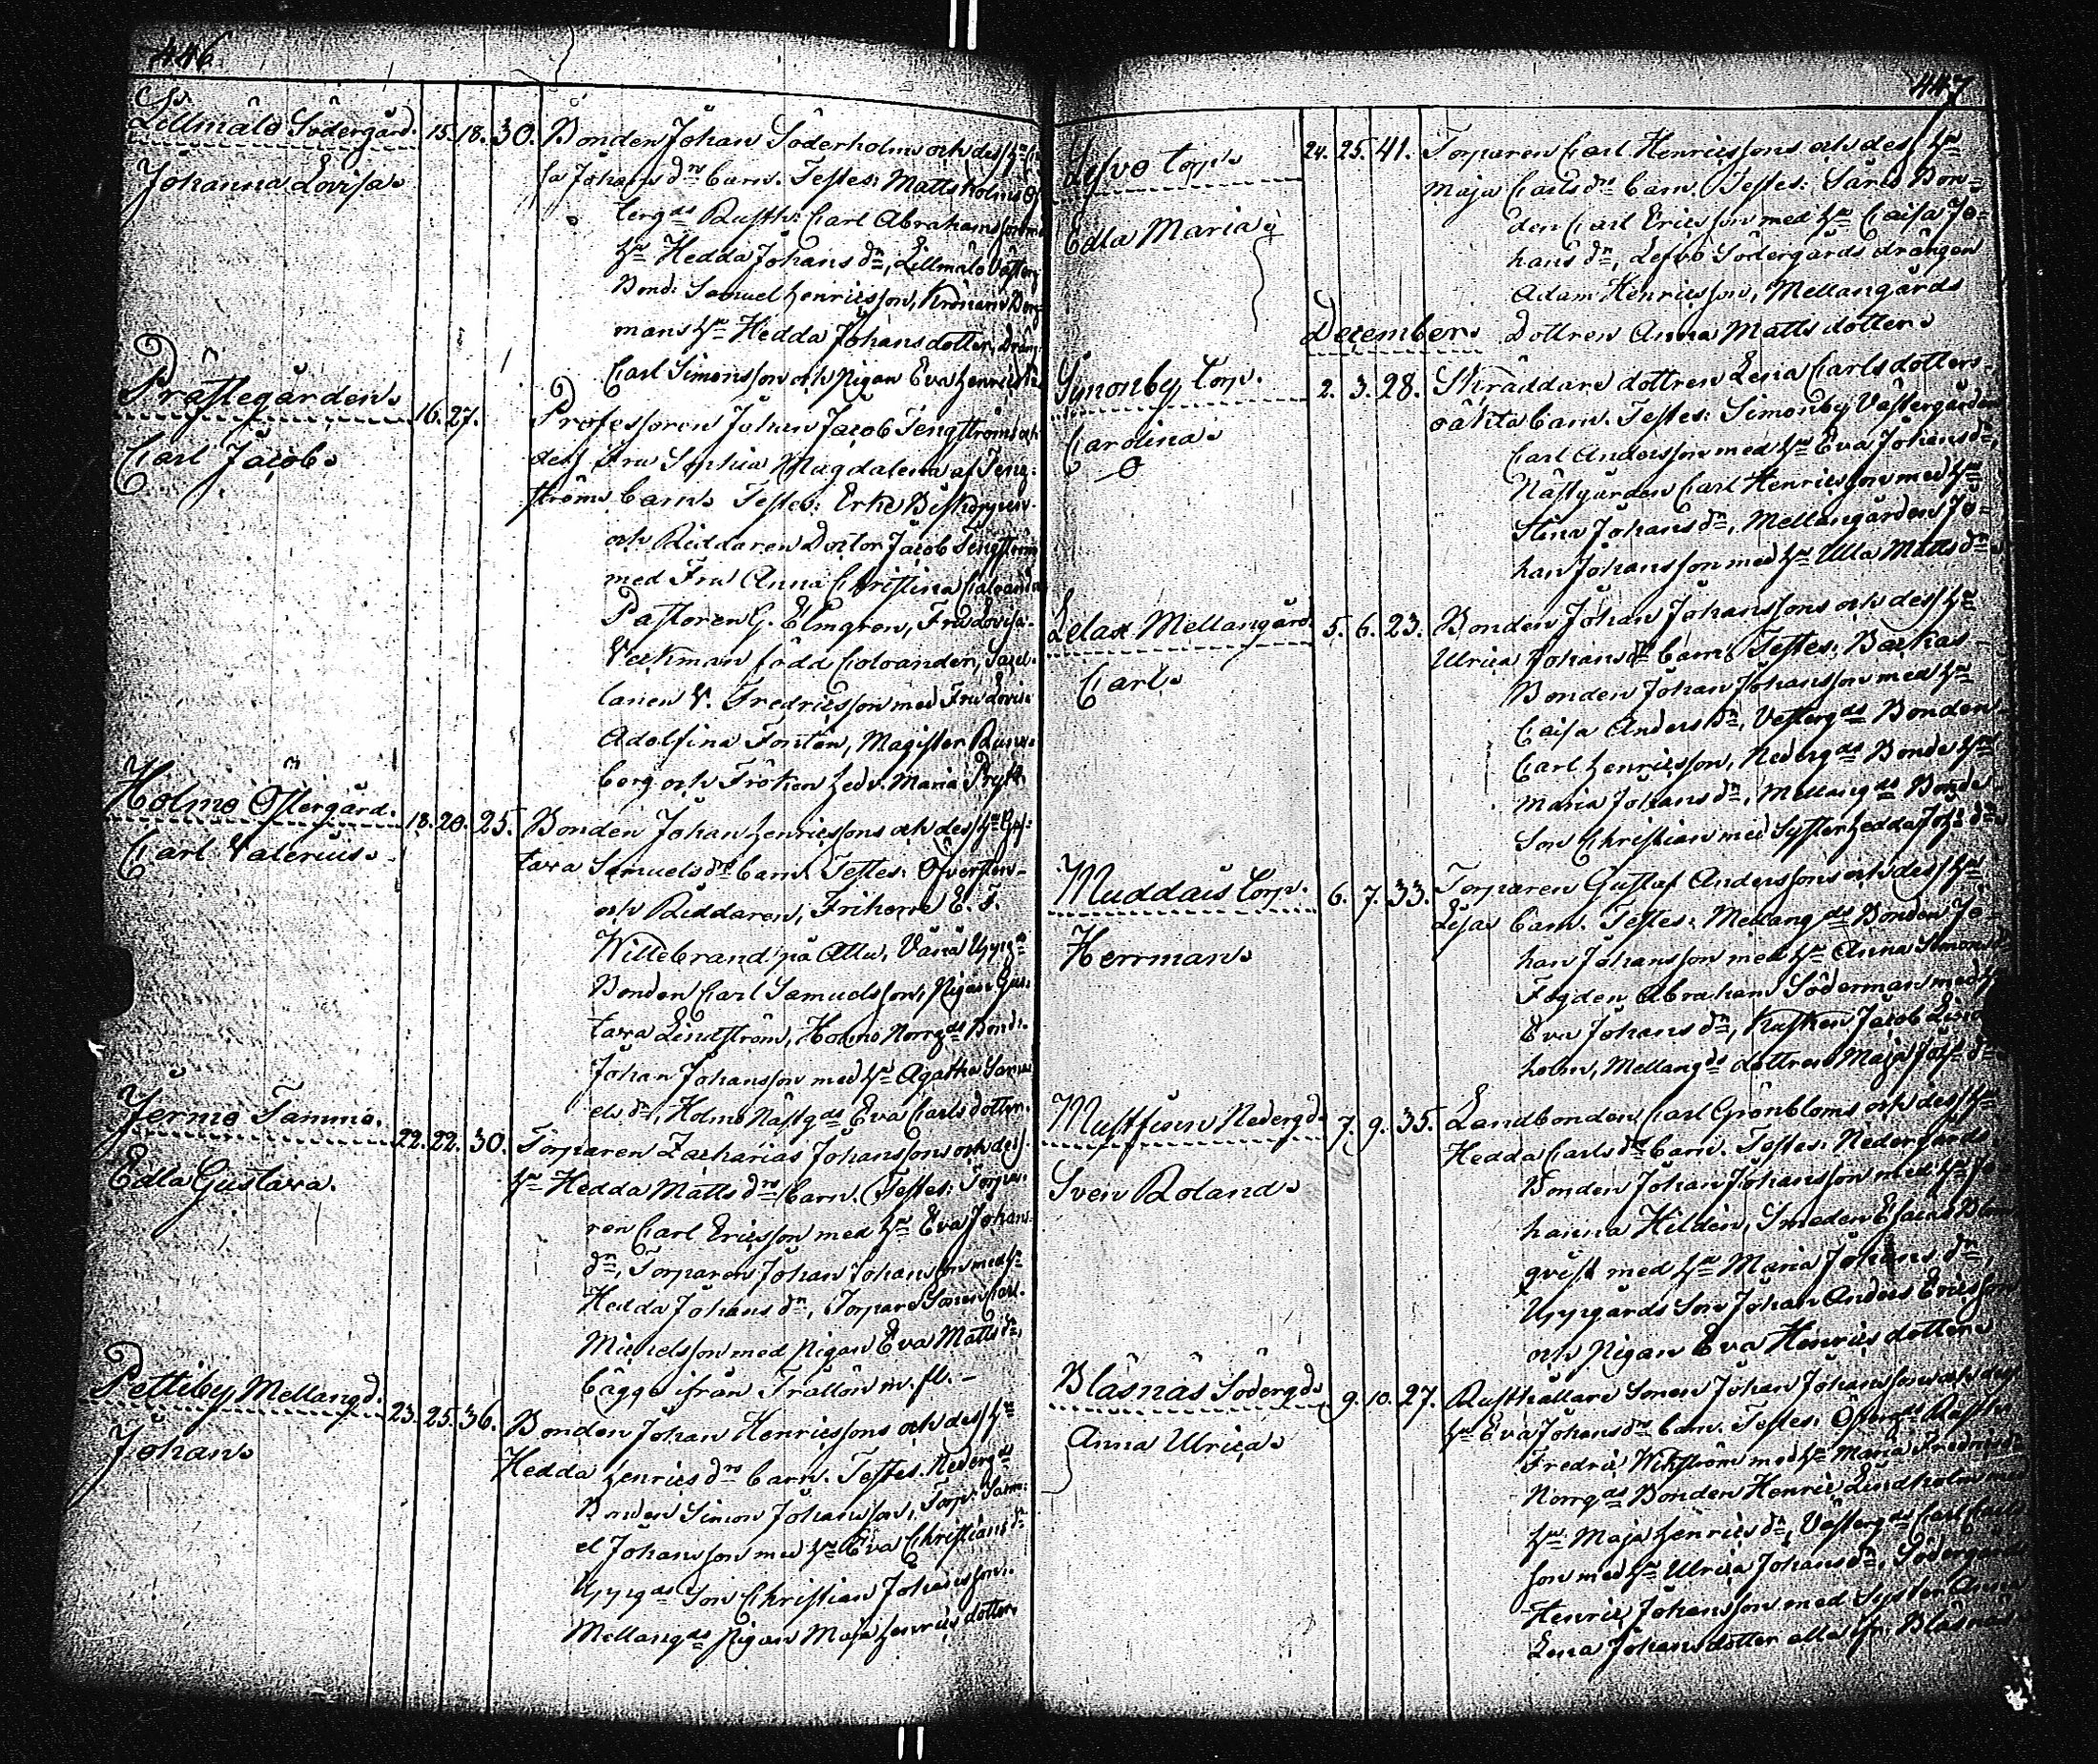 446
Lillmälö Södergård. 15. 18. 30. Bonden Johan Söderholms och dess H:u
Johanna Lovisa. sa Johans d:rs barn. Testes: Mattsholms
berg ds Rusth: Carl Abrahamsson
H:u Hedda Johans d:r, Lillmälö
Bond: Samuel Henricsson,
mans H:u Hedda Johansdotter,
Carl Simonsson och pigan Eva
Prästegården. 16. 27. Professoren Johan Jacob Tengströms och
Carl Jacob. dess Fru Sophia Magdalena af Teng-
ströms barn. Testes: Erke Biskopen
och Riddaren Doctor Jacob Tengström
med Fru Anna Christina Caloander
Pastoren G. Elmgren, Fru Lovisa
Veckman född Caloander,
lanen V. Fredricsson med Fru Lovisa
Adolfina Fontén, Magister Rune-
berg och Fröken Hedv. Maria Prytz.
Holmo Östergård. 18. 20. 25. Bonden Johan Henricssons och dess H:u Gus-
Carl Valerius. tava Samuels d:rs barn. Testes: Öfversten
och Riddaren, Friherre E. F.
Willebrand på Attu,
Bonden Carl Samuelsson, Pigan Gus-
tava Lindström, Holmo Norrg ds Bond:
Johan Johansson med H:u Agatha Samu
els d:r, Holmo Nästg ds Eva Carlsdotter.
Jermo Tammo. 22. 22. 30. Torparen Zacharias Johanssons och dess
Edla Gustava. H:u Hedda Matts d:rs barn. Testes: Torpa-
ren Carl Ericsson med H:u Eva Johans
d:r, Torparen Johan Johansson med H:u
Hedda Johans d:r, Torpare Sonen Carl
Michelsson med pigan Eva Matts d:r,
bägge ifrån Trallön m. fl.
Pettiby Mellangd. 23. 25. 36. Bonden Johan Henricssons och dess H:u
Johan. Hedda Henrics d:rs barn. Testes: Nederg ds
Bonden Simon Johansson, Torp: Samu-
el Johansson med H:u Eva Christians d:r
Uppg ds Son Christian Johansson.
Mellang ds pigan Maja Henricsdotter.
447
Lefvo torp. 24. 25. 41. Torparen Carl Henricssons och dess H:u
Edla Maria. Maja Carls d:rs barn. Testes: Särks Bon-
den Carl Ericsson med H:u Caisa Jo-
hans d:r, Lefvo Södergårds drängen
Adam Henricsson, Mellangårds
Dottren Anna Mattsdotter.
December.
Simonby torp. 2. 3. 28. Skräddare dottren Lena Carlsdotters
Carolina. oäkta barn. Testes: Simonby Västergården
Carl Andersson med H:u Eva Johans d:r,
Nästgården Carl Henricsson med H:u
Stina Johans d:r, Mellangården Jo-
han Johansson med H:u Ulla Matts d:r
Lelax Mellangård. 5. 6. 23. Bonden Johan Johanssons och dess H:u
Carl. Ulrica Johans d:rs barn. Testes: Backas
Bonden Johan Johansson med H:u
Caisa Anders d:r, Vesterg ds Bonden
Carl Henricsson, Nederg ds Bonde H:u
Maria Johans d:r, Mellang ds Bonde
Son Christian med Syster Hedda Joh: d:r.
Muddais torp. 6. 7. 33. Torparen Gustaf Anderssons och dess H:u
Herrman. Lisas barn. Testes: Mellang ds Bonden Jo-
han Johansson med H:u Anna Simons d:r
Fogden Abraham Söderman med H:u
Eva Johans d:r, Kusken Jacob Lind
holm, Mellang ds dottren Maja Joh: d:r
Mustfinn Nedergd. 7. 9. 35. Landbonden Carl Grönbloms och dess H:u
Sven Roland. Hedda Carls d:rs barn. Testes: Nedergårds
Bonden Johan Johansson med H:u Jo-
hanna Hildén, Smeden Esaias Blom
qvist med H:u Maria Johans d:r,
Uppgårds Son Johan Anders Ericsson
och Pigan Eva Henricsdotter.
Bläsnäs Södergd. 9. 10. 27. Rusthållare Sonen Johan Johanssons och dess
Anna Ulrica. H:u Eva Johans d:rs barn. Testes: Österg ds Rusth:
Fredric Wikström med H:u Maria Fredrics d:r
Norrg ds Bonden Henric Lindholm med
H:u Maja Henrics d:r, Västerg ds Carl Carls
son med H:u Ulrica Johans d:r, Södergårds
Henric Johansson med Syster Anna
Lena Johansdotter alla ifr: Bläsnäs.